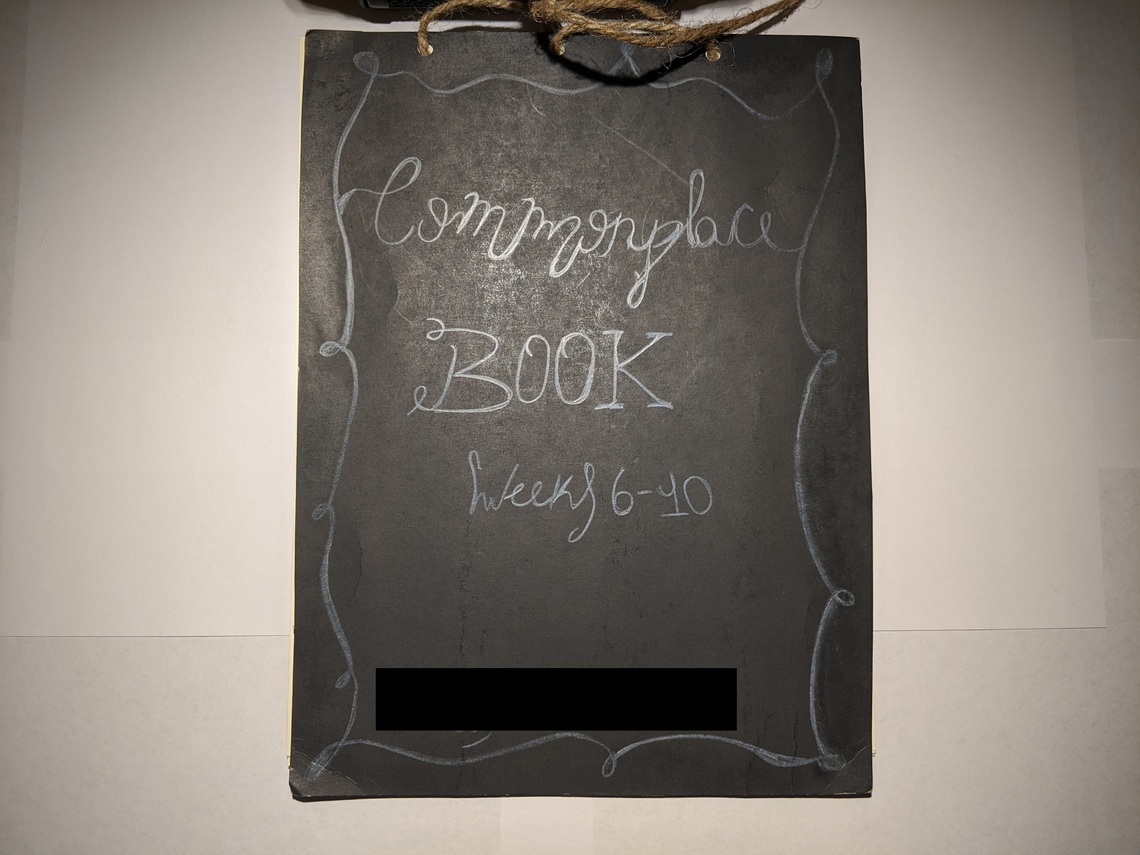 Commonplace
BOOK
Weeks 6-10